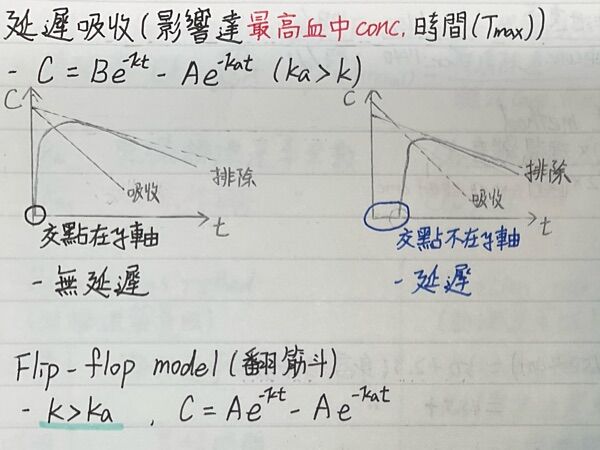 延遲吸收(影響達最高血中conc.時間(Tmax))
- C = Be^-kt - Ae^-kat (ka>k)
C
C
排除
排除
吸收
吸收
t
t
交點在y軸
交點不在y軸
- 無延遲
- 延遲
Flip-flop model(翻筋斗)
- k>ka , C=Ae^-kt - Ae^-kat